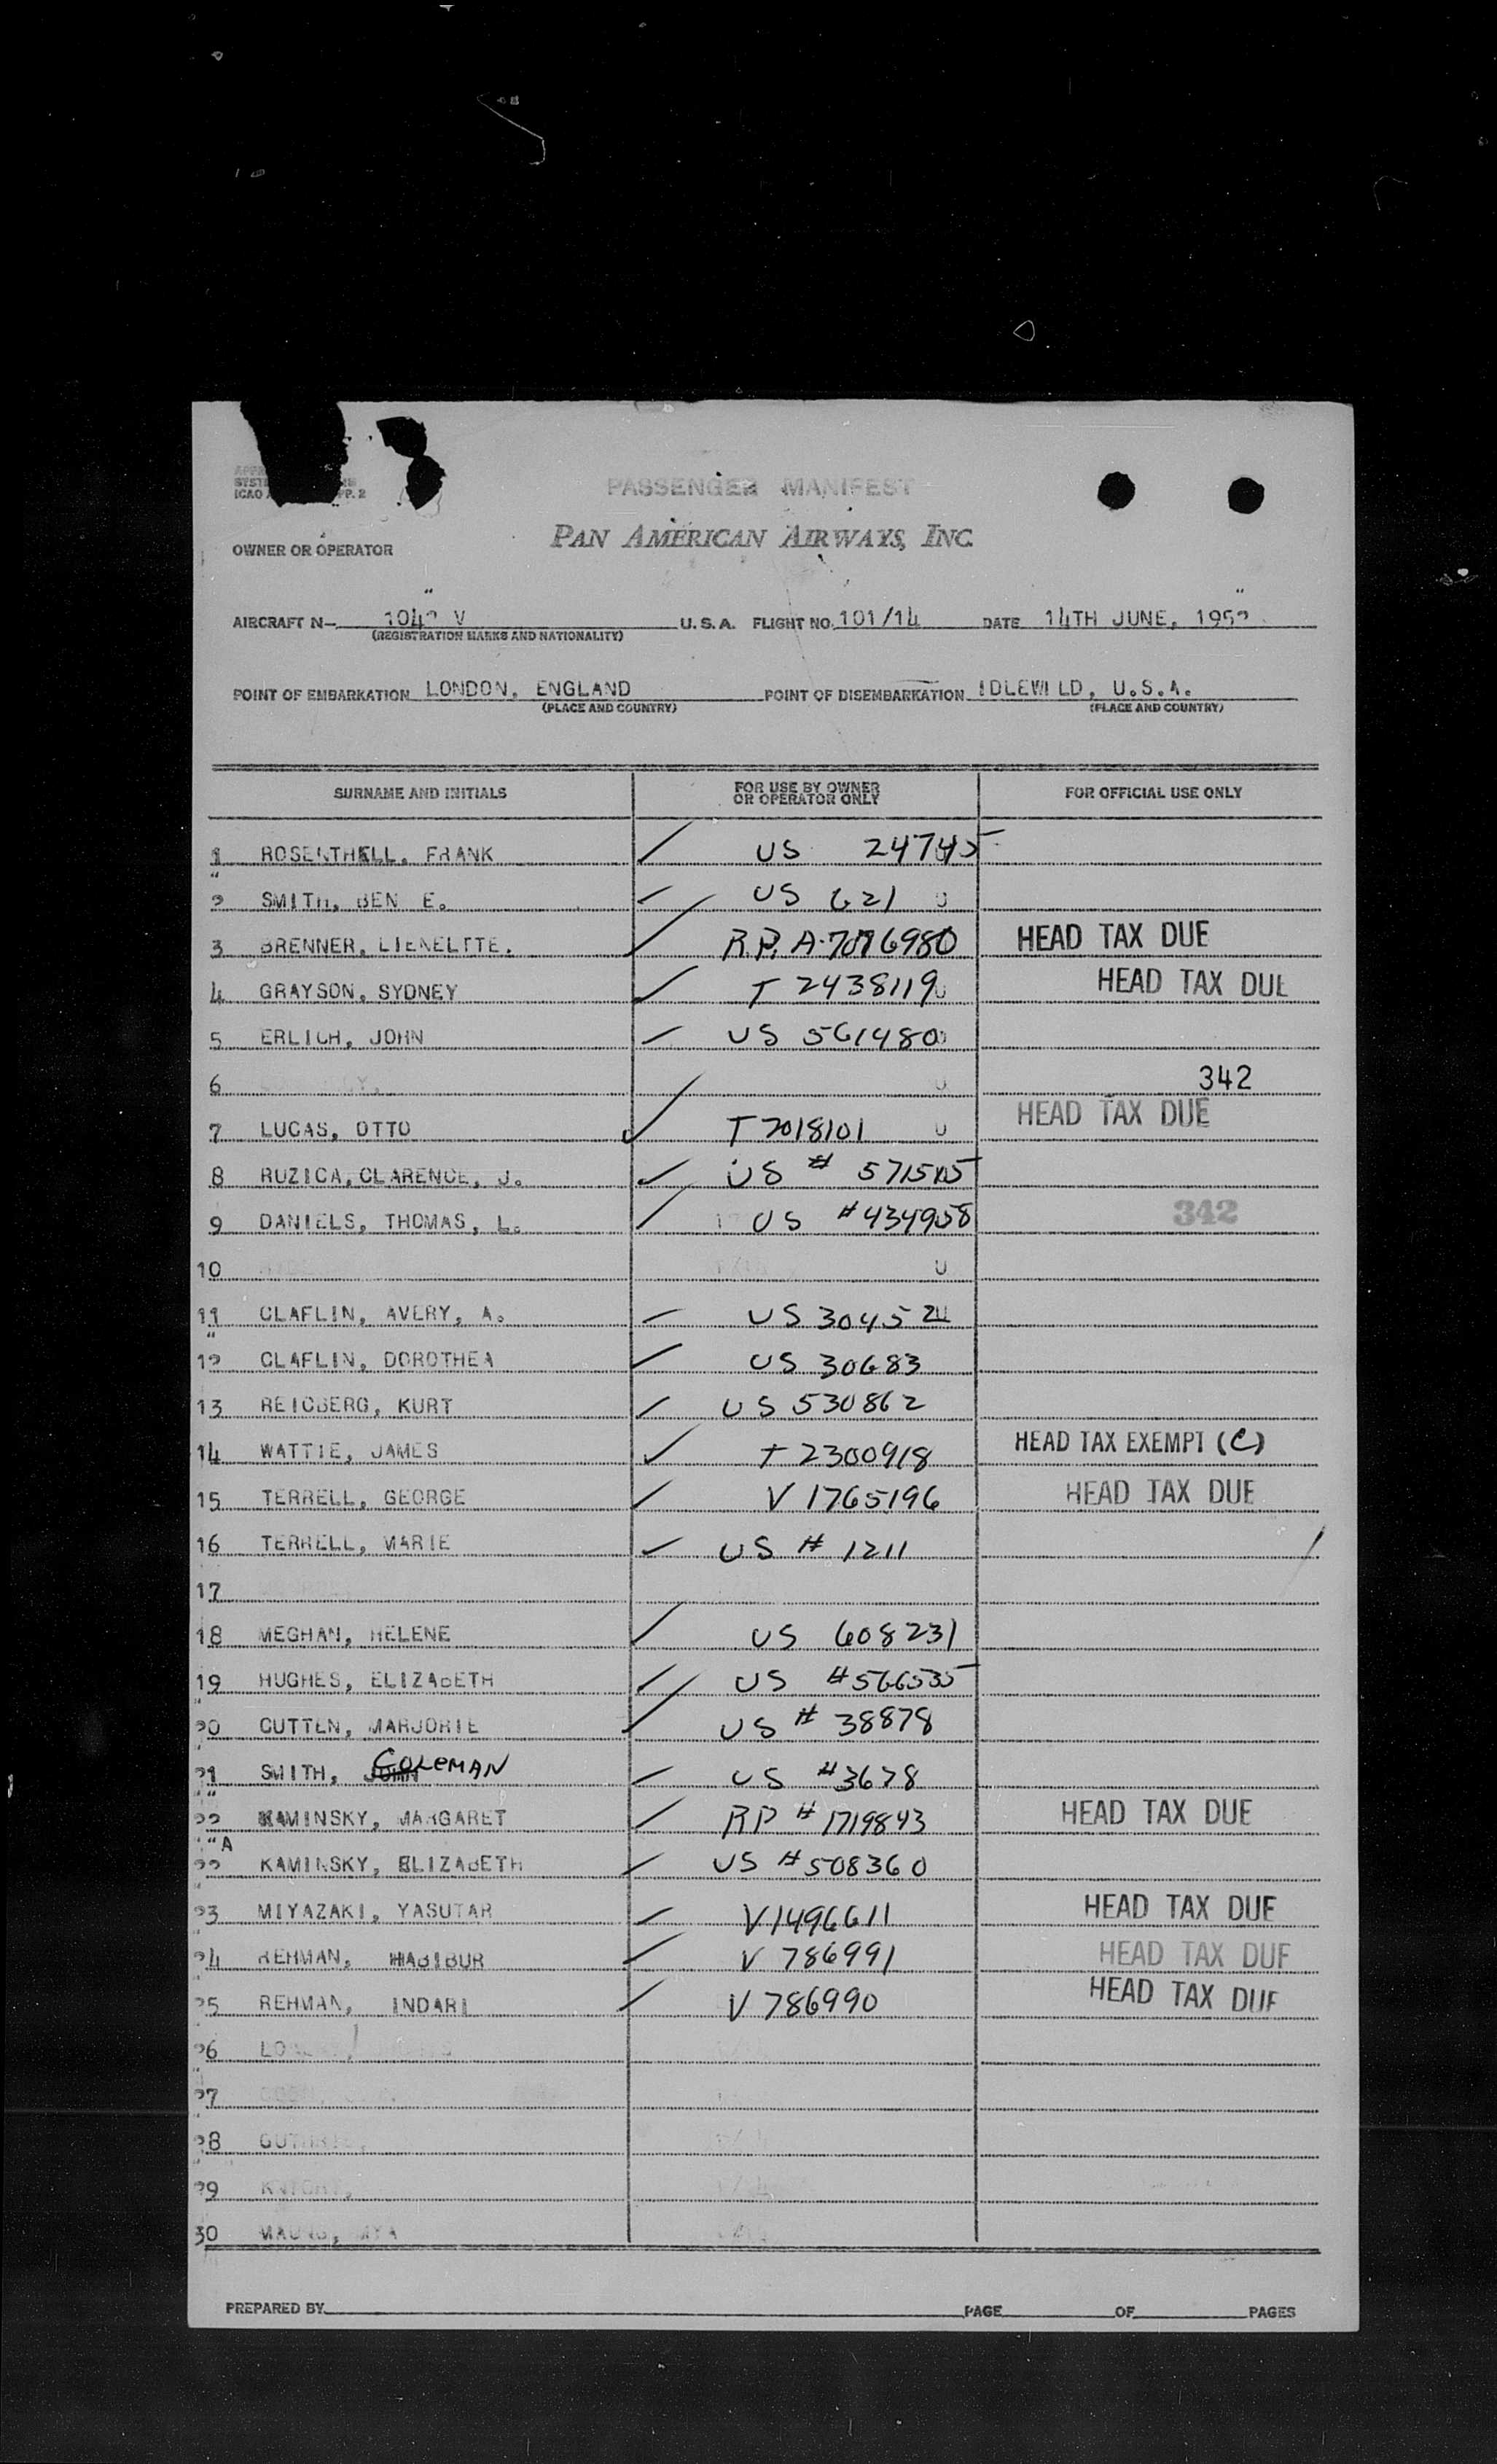 PASSENGER MANIFEST
ICAO PP. 2
PAN AMERICAN AIRWAYS, INC
OWNER OR OPERATOR
AIRCRAFT N- 1042 V U.S.A. FLIGHT NO. 101/14 DATE 14TH JUNE, 1952
(REGISTRATION MARKS AND NATIONALITY)
POINT OF EMBARKATION LONDON, ENGLAND POINT OF DISEMBARKATION IDLEWILD, U.S.A.
(PLACE AND COUNTRY) (PLACE AND COUNTRY)
SURNAME AND INITIALS FOR USE BY OWNER OR OPERATOR ONLY FOR OFFICIAL USE ONLY
1 ROSENTHELL, FRANK US 24745
2 SMITH, BEN E. US 621 U
3 BRENNER, LIENELTTE. R.P. A-7076980 HEAD TAX DUE
4 GRAYSON, SYDNEY T 2438119 U HEAD TAX DUE
5 ERLICH, JOHN US 561480
6 U 342
7 LUCAS, OTTO T 2018101 U HEAD TAX DUE
8 RUZICA, CLARENCE, J. US #
9 DANIELS, THOMAS, L. US #434958 342
10 U
11 CLAFLIN, AVERY, A. US
12 CLAFLIN, DOROTHEA US 30683
13 REICBERG, KURT US 530862
14 WATTIE, JAMES T 2300918 HEAD TAX EXEMPT (C)
15 TERRELL, GEORGE V 1765196 HEAD TAX DUE
16 TERRELL, MARIE US # 1211
17
18 MEGHAN, HELENE US 608231
19 HUGHES, ELIZABETH US #566535
20 CUTTEN, MARJORIE US # 38878
21 SMITH, JOHN COLEMAN US #3678
22 KAMINSKY, MARGARET RP # 1719843 HEAD TAX DUE
A
22 KAMINSKY, ELIZABETH US #508360
23 MIYAZAKI, YASUTAR V1496611 HEAD TAX DUE
24 REHMAN, HABIBUR V 786991 HEAD TAX DUE
25 REHMAN, INDARI V 786990 HEAD TAX DUE
26
27
28
29
30 MYA
PREPARED BY PAGE OF PAGES